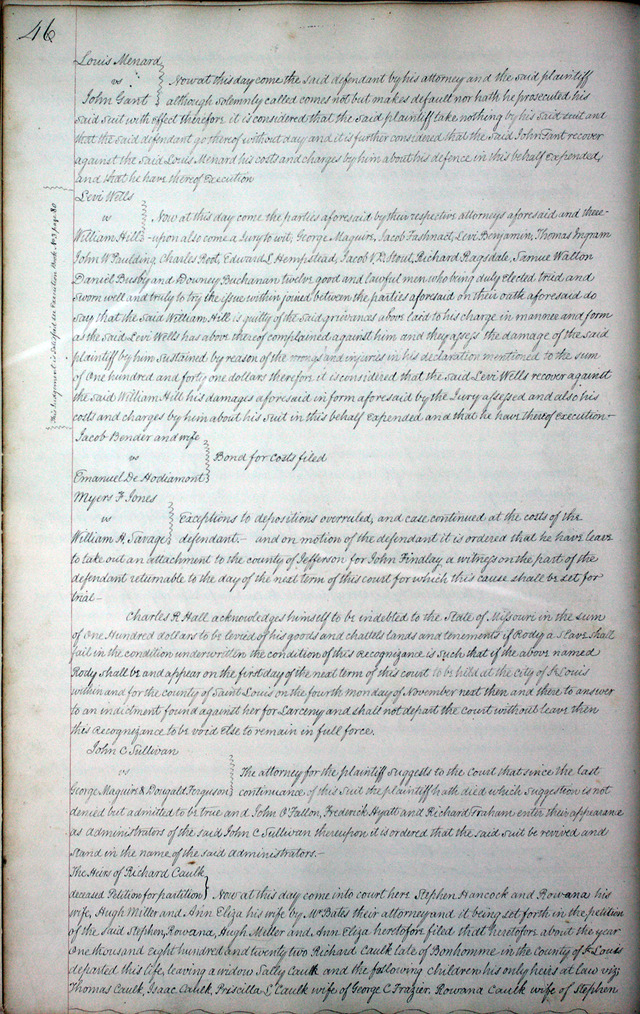 46
Louis Menard
vs
John Gant
Now at this day come the said defendant by his attorney and the said plaintiff
although solemnly called comes not but makes default nor hath he prosecuted his
said suit with effect therefore it is considered that the said plaintiff take nothing by his said suit and
that the said defendant go thereof without day and it is further considered that the said John Gant recover
against the said Louis Menard his costs and charges by him about his defence in this behalf expended,
and that he have thereof Execution
Levi Wells
vs
William Hill
Now at this day come the parties aforesaid by their respective attorneys aforesaid and there-
-upon also come a Jury to wit; George Maguire, Jacob Fashnact, Levi Benjamin, Thomas Ingram
John W Paulding, Charles Root, Edward L Hempstead, Jacob V. D. Stout, Richard Ragsdale, Samue Walton
Daniel Busby and Downey Buchanan twelve good and lawful men who being duly elected tried and
sworn well and truly to try the issue within joined between the parties aforesaid on their oath aforesaid do
say that the said William Hill is guilty of the said grievances above laid to his charge in manner and form
as the said Levi Wells has above thereof complained against him and they assess the damage of the said
plaintiff by him sustained by reason of the wrongs and injuries in his declaration mentioned to the sum
of One hundred and forty one dollars therefore it is considered that the said Levi Wells recover against
the said William Hill his damages aforesaid in form aforesaid by the Jury assessed and also his
costs and charges by him about his suit in this behalf Expended and that he have thereof Execution-
This Judgment is Satisfied see Execution Book No 3 page 80
Jacob Bender and wife
vs
Emanuel De Hodiamont
Bond for costs filed
Myers F Jones
vs
William H. Savage
Exceptions to depositions overruled, and case continued at the costs of the
defendant.- and on motion of the defendant it is ordered that he have leave
to take out an attachment to the county of Jefferson for John Findlay a witness on the part of the
defendant returnable to the day of the next term of this court for which this cause shall be set for
trial-
Charles R Hall acknowledges himself to be indebted to the State of Missouri in the sum
of One Hundred dollars to be levied of his goods and chattels lands and tenements if Rody a Slave shall
fail in the condition underwritten the condition of this Recognizance is such that if the above named
Rody shall be and appear on the first day of the next term of this court to be held at the city of St Louis
within and for the county of Saint Louis on the fourth monday of November next then and there to answer
to an indictment found against her for Larceny and shall not depart the court without leave then
this Recognizance to be void else to remain in full force.
John C Sullivan
vs
George Maguire & Dougald Ferguson
The attorney for the plaintiff suggests to the court that since the last
continuance of this suit the plaintiff hath died which suggestion is not
denied but admitted to be true and John O'Fallon, Frederick Hyatt and Richard Fraham enter their appearance
as administrators of the said John C Sullivan thereupon it is ordered that the said suit be revived and
stand in the name of the said administrators.-
The Heirs of Richard Caulk
deceased Petition for partition
Now at this day come into court here Stephen Hancock and Rowana his
wife, Hugh Miller and Ann Eliza his wife by Mr Bates their attorney and it being set forth in the petition
of the said Stephen, Rowana, Hugh Miller and Ann Eliza heretofore filed that heretofore about the year
One thousand Eight hundred and twenty two Richard Caulk late of Bonhomme in the County of St Louis
departed this life, leaving a widow Sally Caulk and the following children his only heirs at law viz;
Thomas Caulk, Isaac Caulk, Priscilla L Caulk wife of George C Frazier, Rowana Caulk wife of Stephen